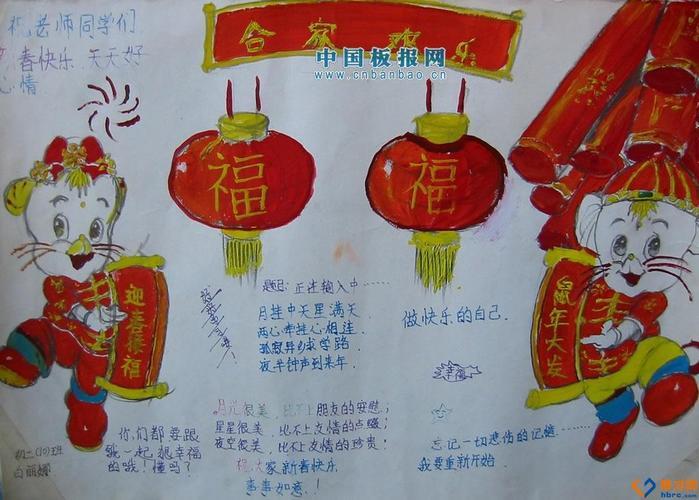 祝老师同学们
春快乐.天天好
心情
合家欢乐
中国板报网
www.cnbanbao.cn
福
福
迎春接福
鼠年大发
题目:正在输入中······
月挂中天星满天
两心牵挂心相连
孤寂异乡求学路
夜半钟声到来年
做快乐的自己.
幸福
月光很美,比不上朋友的安慰;
星星很美,比不上友情的点缀;
夜空很美,比不上友情的珍贵;
祝大家新春快乐
事事如意!
忘记一切悲伤的记忆····
我要重新开始
你们都要跟
我一起很幸福
的哦!懂吗?
初二(10)班
白丽娜
hbrc.com